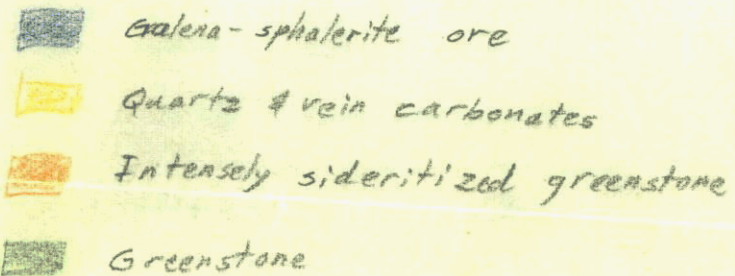 Galena-sphalerite ore
Quartz & vein carbonates
Intensely sideritized greenstone
Greenstone